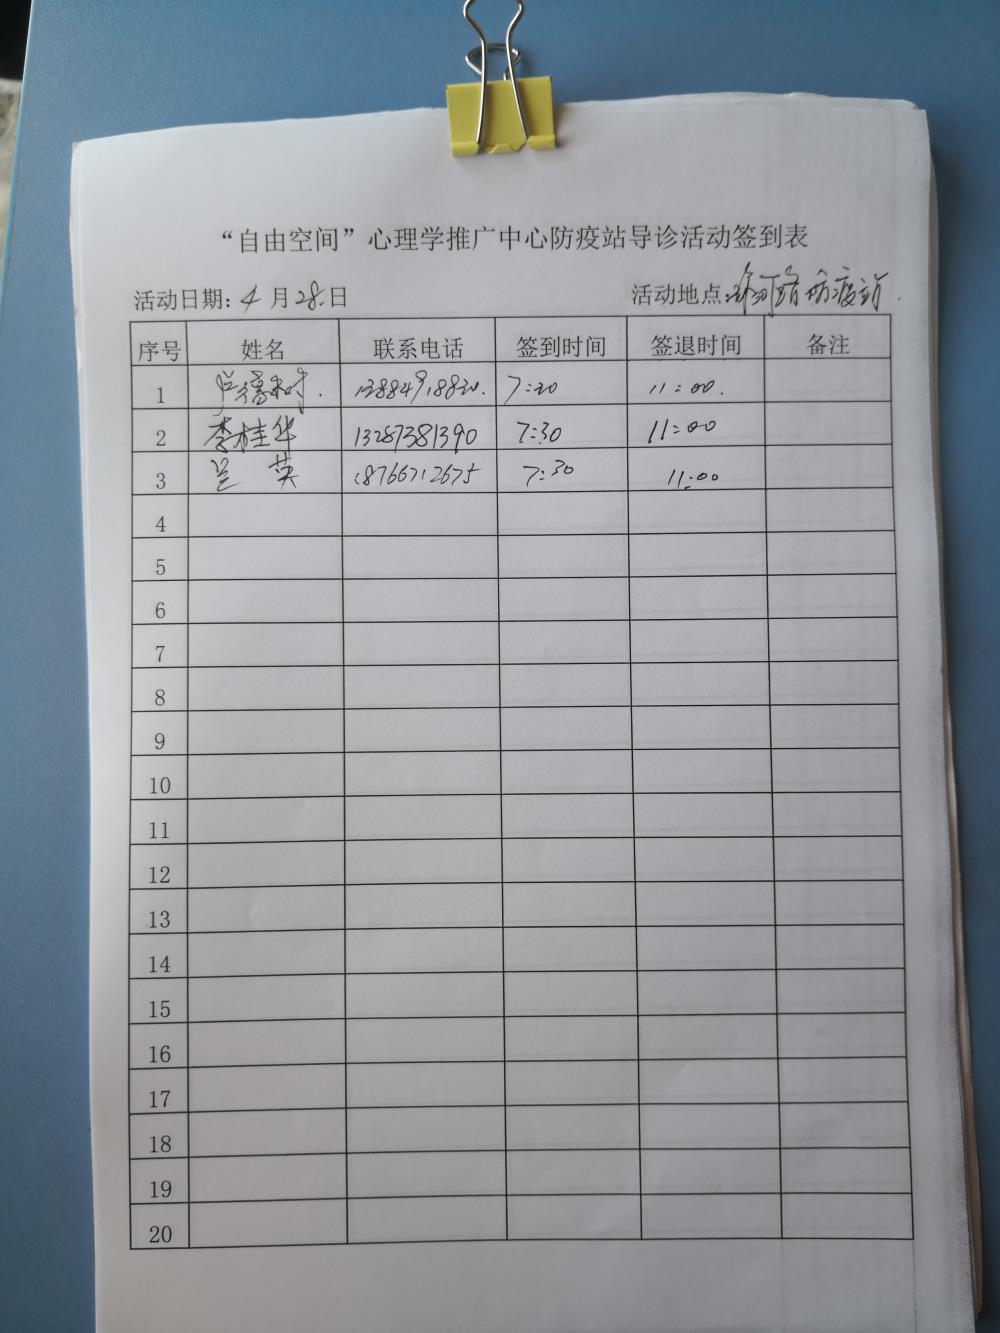 “自由空间”心理学推广中心防疫站导诊活动签到表
活动日期：4月28日 活动地点： 防疫站
序号 姓名 联系电话 签到时间 签退时间 备注
1 卢 树 13884918830 7:30 11:00
2 李桂华 13287381390 7:30 11:00
3 兰英 18766712675 7:30 11:00
4
5
6
7
8
9
10
11
12
13
14
15
16
17
18
19
20